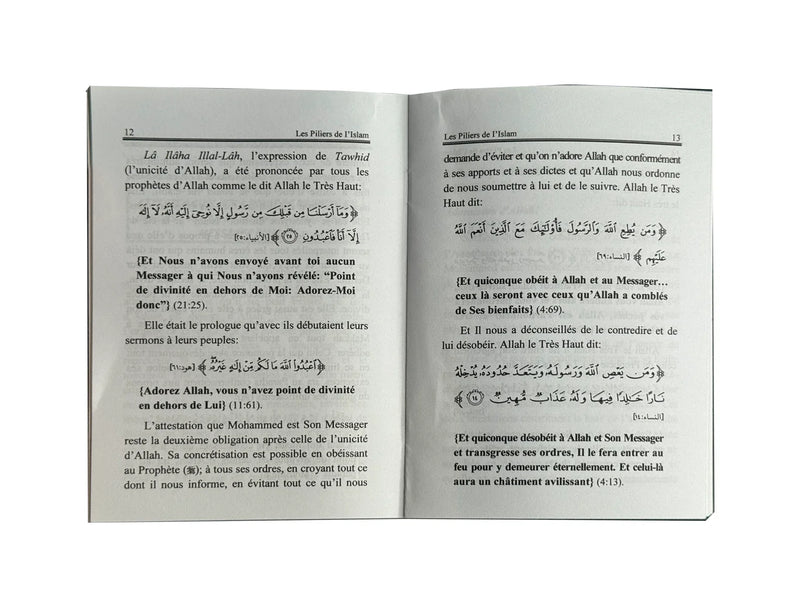 12
Les Piliers de l'Islam
Lâ Ilâha Illal-Lâh, l'expression de Tawhid
(l'unicité d'Allah), a été prononcée par tous les
prophètes d'Allah comme le dit Allah le Très Haut:
﴿وَمَآ أَرْسَلْنَا مِن قَبْلِكَ مِن رَّسُولٍ إِلَّا نُوحِىٓ إِلَيْهِ أَنَّهُۥ لَآ إِلَٰهَ
إِلَّآ أَنَا۠ فَٱعْبُدُونِ ٢٥﴾ [الأنبياء:٢٥]
{Et Nous n'avons envoyé avant toi aucun
Messager à qui Nous n'ayons révélé: “Point
de divinité en dehors de Moi: Adorez-Moi
donc”} (21:25).
Elle était le prologue qu'avec ils débutaient leurs
sermons à leurs peuples:
﴿ٱعْبُدُوا۟ ٱللَّهَ مَا لَكُم مِّنْ إِلَٰهٍ غَيْرُهُۥ﴾ [هود:٦١]
{Adorez Allah, vous n'avez point de divinité
en dehors de Lui} (11:61).
L'attestation que Mohammed est Son Messager
reste la deuxième obligation après celle de l'unicité
d'Allah. Sa concrétisation est possible en obéissant
au Prophète (ﷺ); à tous ses ordres, en croyant tout ce
dont il nous informe, en évitant tout ce qu'il nous
Les Piliers de l'Islam
13
demande d'éviter et qu'on n'adore Allah que conformément
à ses apports et à ses dictes et qu'Allah nous ordonne
de nous soumettre à lui et de le suivre. Allah le Très
Haut dit:
﴿وَمَن يُطِعِ ٱللَّهَ وَٱلرَّسُولَ فَأُو۟لَٰٓئِكَ مَعَ ٱلَّذِينَ أَنْعَمَ ٱللَّهُ
عَلَيْهِم﴾ [النساء:٦٩]
{Et quiconque obéit à Allah et au Messager…
ceux là seront avec ceux qu'Allah a comblés
de Ses bienfaits} (4:69).
Et Il nous a déconseillés de le contredire et de
lui désobéir. Allah le Très Haut dit:
﴿وَمَن يَعْصِ ٱللَّهَ وَرَسُولَهُۥ وَيَتَعَدَّ حُدُودَهُۥ يُدْخِلْهُ
نَارًا خَٰلِدًا فِيهَا وَلَهُۥ عَذَابٌ مُّهِينٌ ١٤﴾
[النساء:١٤]
{Et quiconque désobéit à Allah et Son Messager
et transgresse ses ordres, Il le fera entrer au
feu pour y demeurer éternellement. Et celui-là
aura un châtiment avilissant} (4:13).